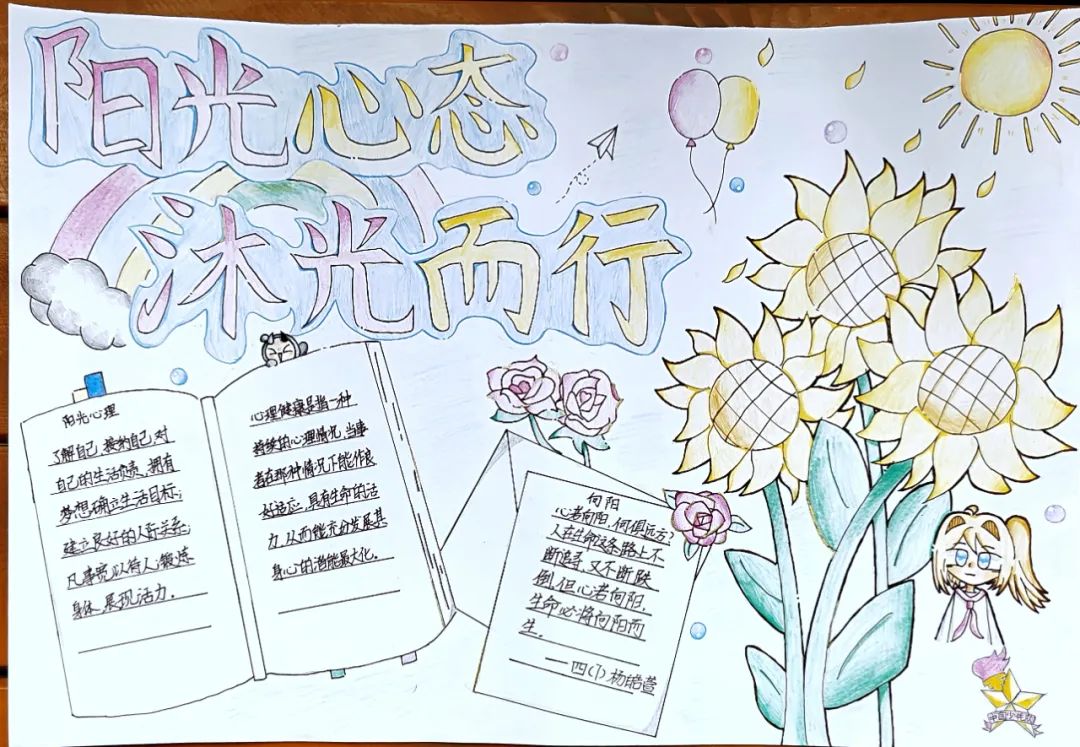 阳光心态
沐光而行
阳光心理
了解自己,接纳自己,对
自己的生活负责、拥有
梦想,确立生活目标;
建立良好的人际关系;
凡事宽以待人;锻炼
身体,展现活力.
心理健康是指一种
持续的心理情况,当事
者在那种情况下能作良
好适应,具有生命的活
力,从而能充分发展其
身心的潜能最大化.
向阳
心若向阳,何惧远方;
人在生命这条路上不
断追寻,又不断跌
倒,但心若向阳,
生命必将向阳而
生.
——四(1)杨皓萱
中国少年先